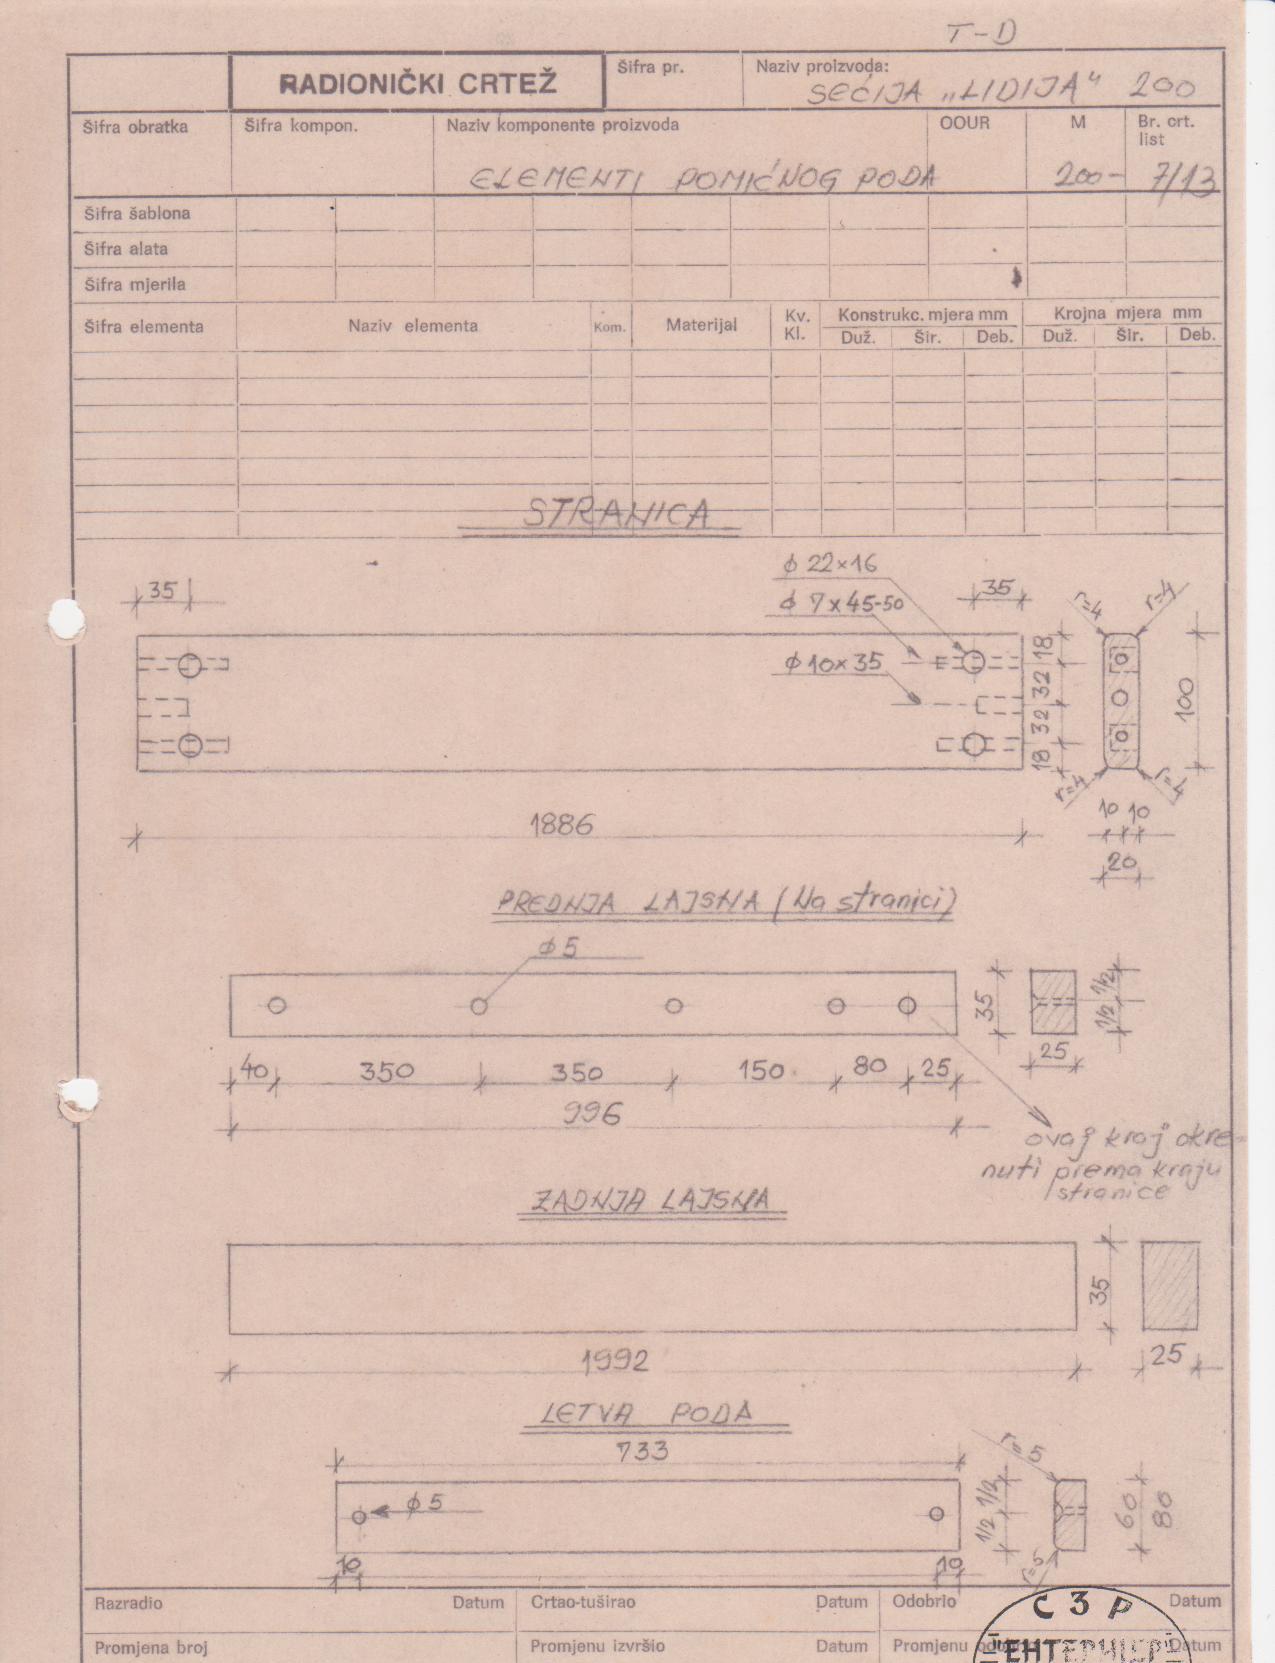 T-D
RADIONIČKI CRTEŽ
Šifra pr.
Naziv proizvoda:
SEĆIJA „LIDIJA" 200
Šifra obratka
Šifra kompon.
Naziv komponente proizvoda
OOUR
M
Br. crt. list
ELEMENTI POMIĆNOG PODA
200-
7/13
Šifra šablona
Šifra alata
Šifra mjerila
Šifra elementa
Naziv elementa
Kom.
Materijal
Kv. Kl.
Konstrukc. mjera mm
Krojna mjera mm
Duž. Šir. Deb. Duž. Šir. Deb.
STRANICA
ϕ 22×16
35
ϕ 7×45-50
35
r=4 r=4
ϕ10×35
18
32
32
18
100
r=4 r=4
10 10
1886
20
PREDNJA LAJSNA (Na stranici)
ϕ5
35
1/2 1/2
25
40 350 350 150 80 25
996
ovaj kraj okre-
nuti prema kraju
stranice
ZADNJA LAJSNA
35
1992
25
LETVA PODA
733
r=5
ϕ5
1/2 1/2
60
80
10 10
r=5
Razradio Datum Crtao-tuširao Datum Odobrio Datum
СЗР
Promjena broj Promjenu izvršio Datum Promjenu Datum
"ЕНТЕРИЈЕР"